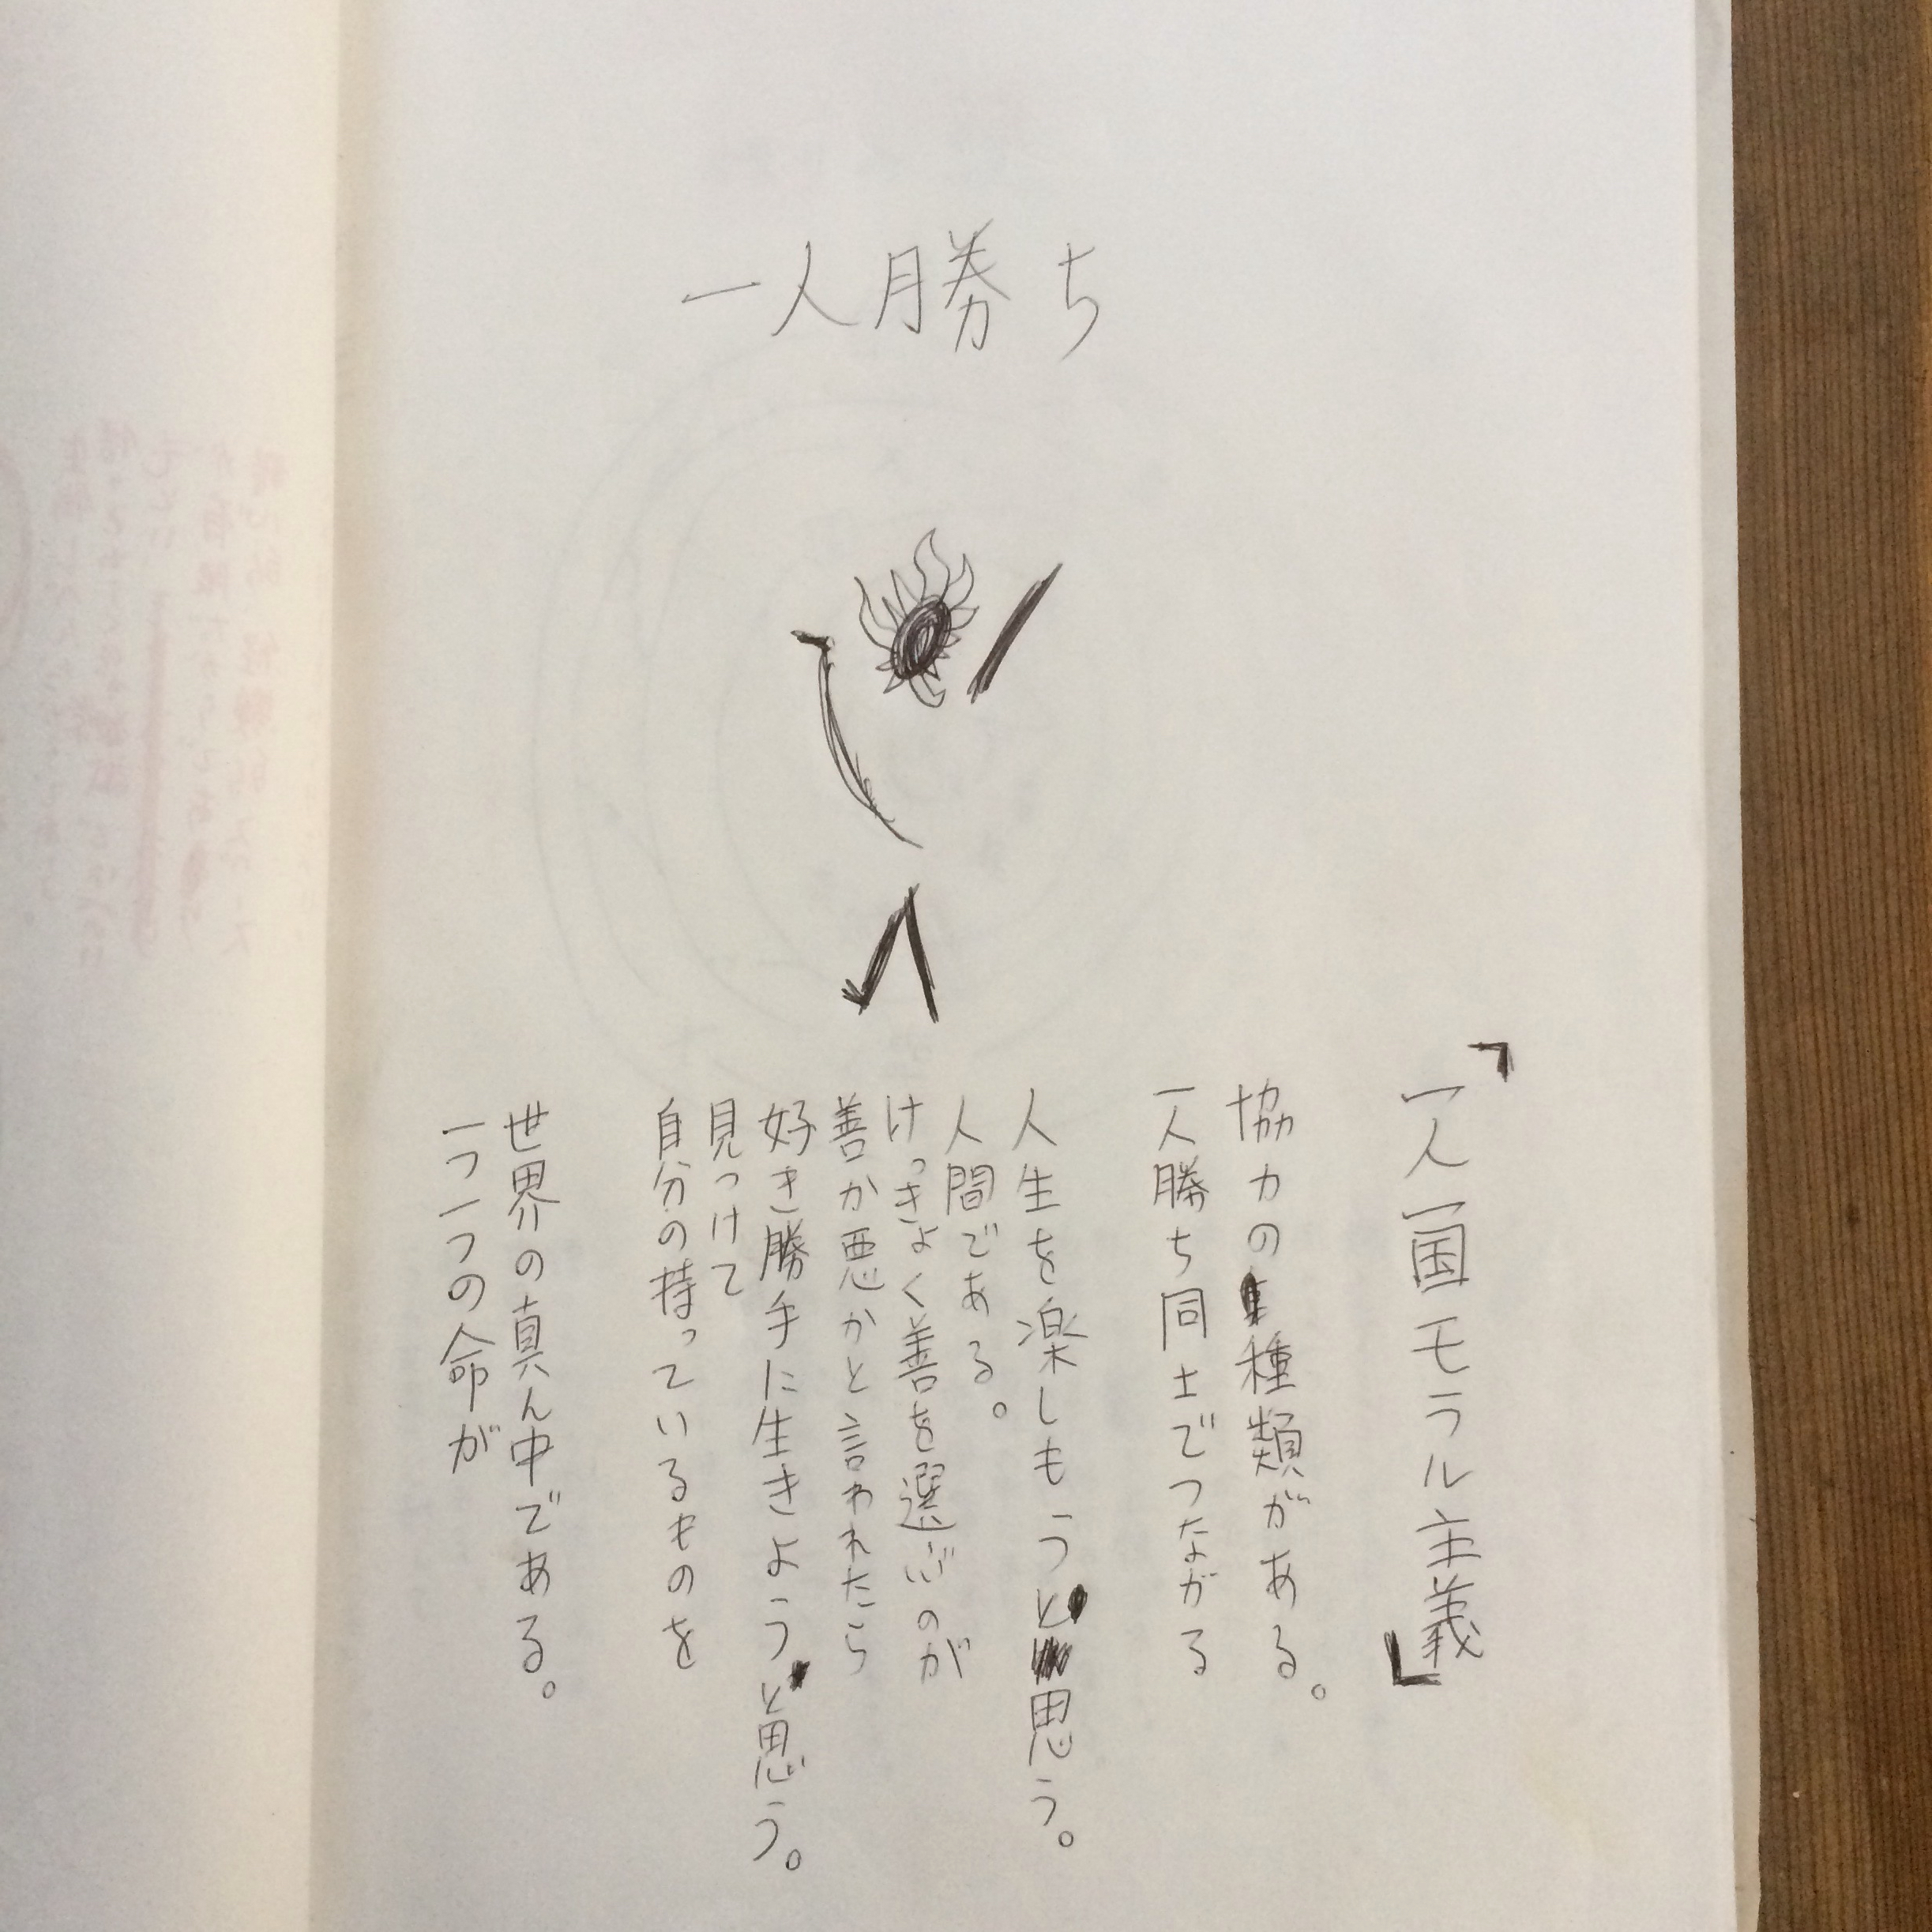 一人勝ち
「一人一国モラル主義」
協力の種類がある。
一人勝ち同士でつながる
人生を楽しもうと思う。
人間である。
けっきょく善を選ぶのが
善か悪かと言われたら
好き勝手に生きようと思う。
見つけて
自分の持っているものを
世界の真ん中である。
一つ一つの命が